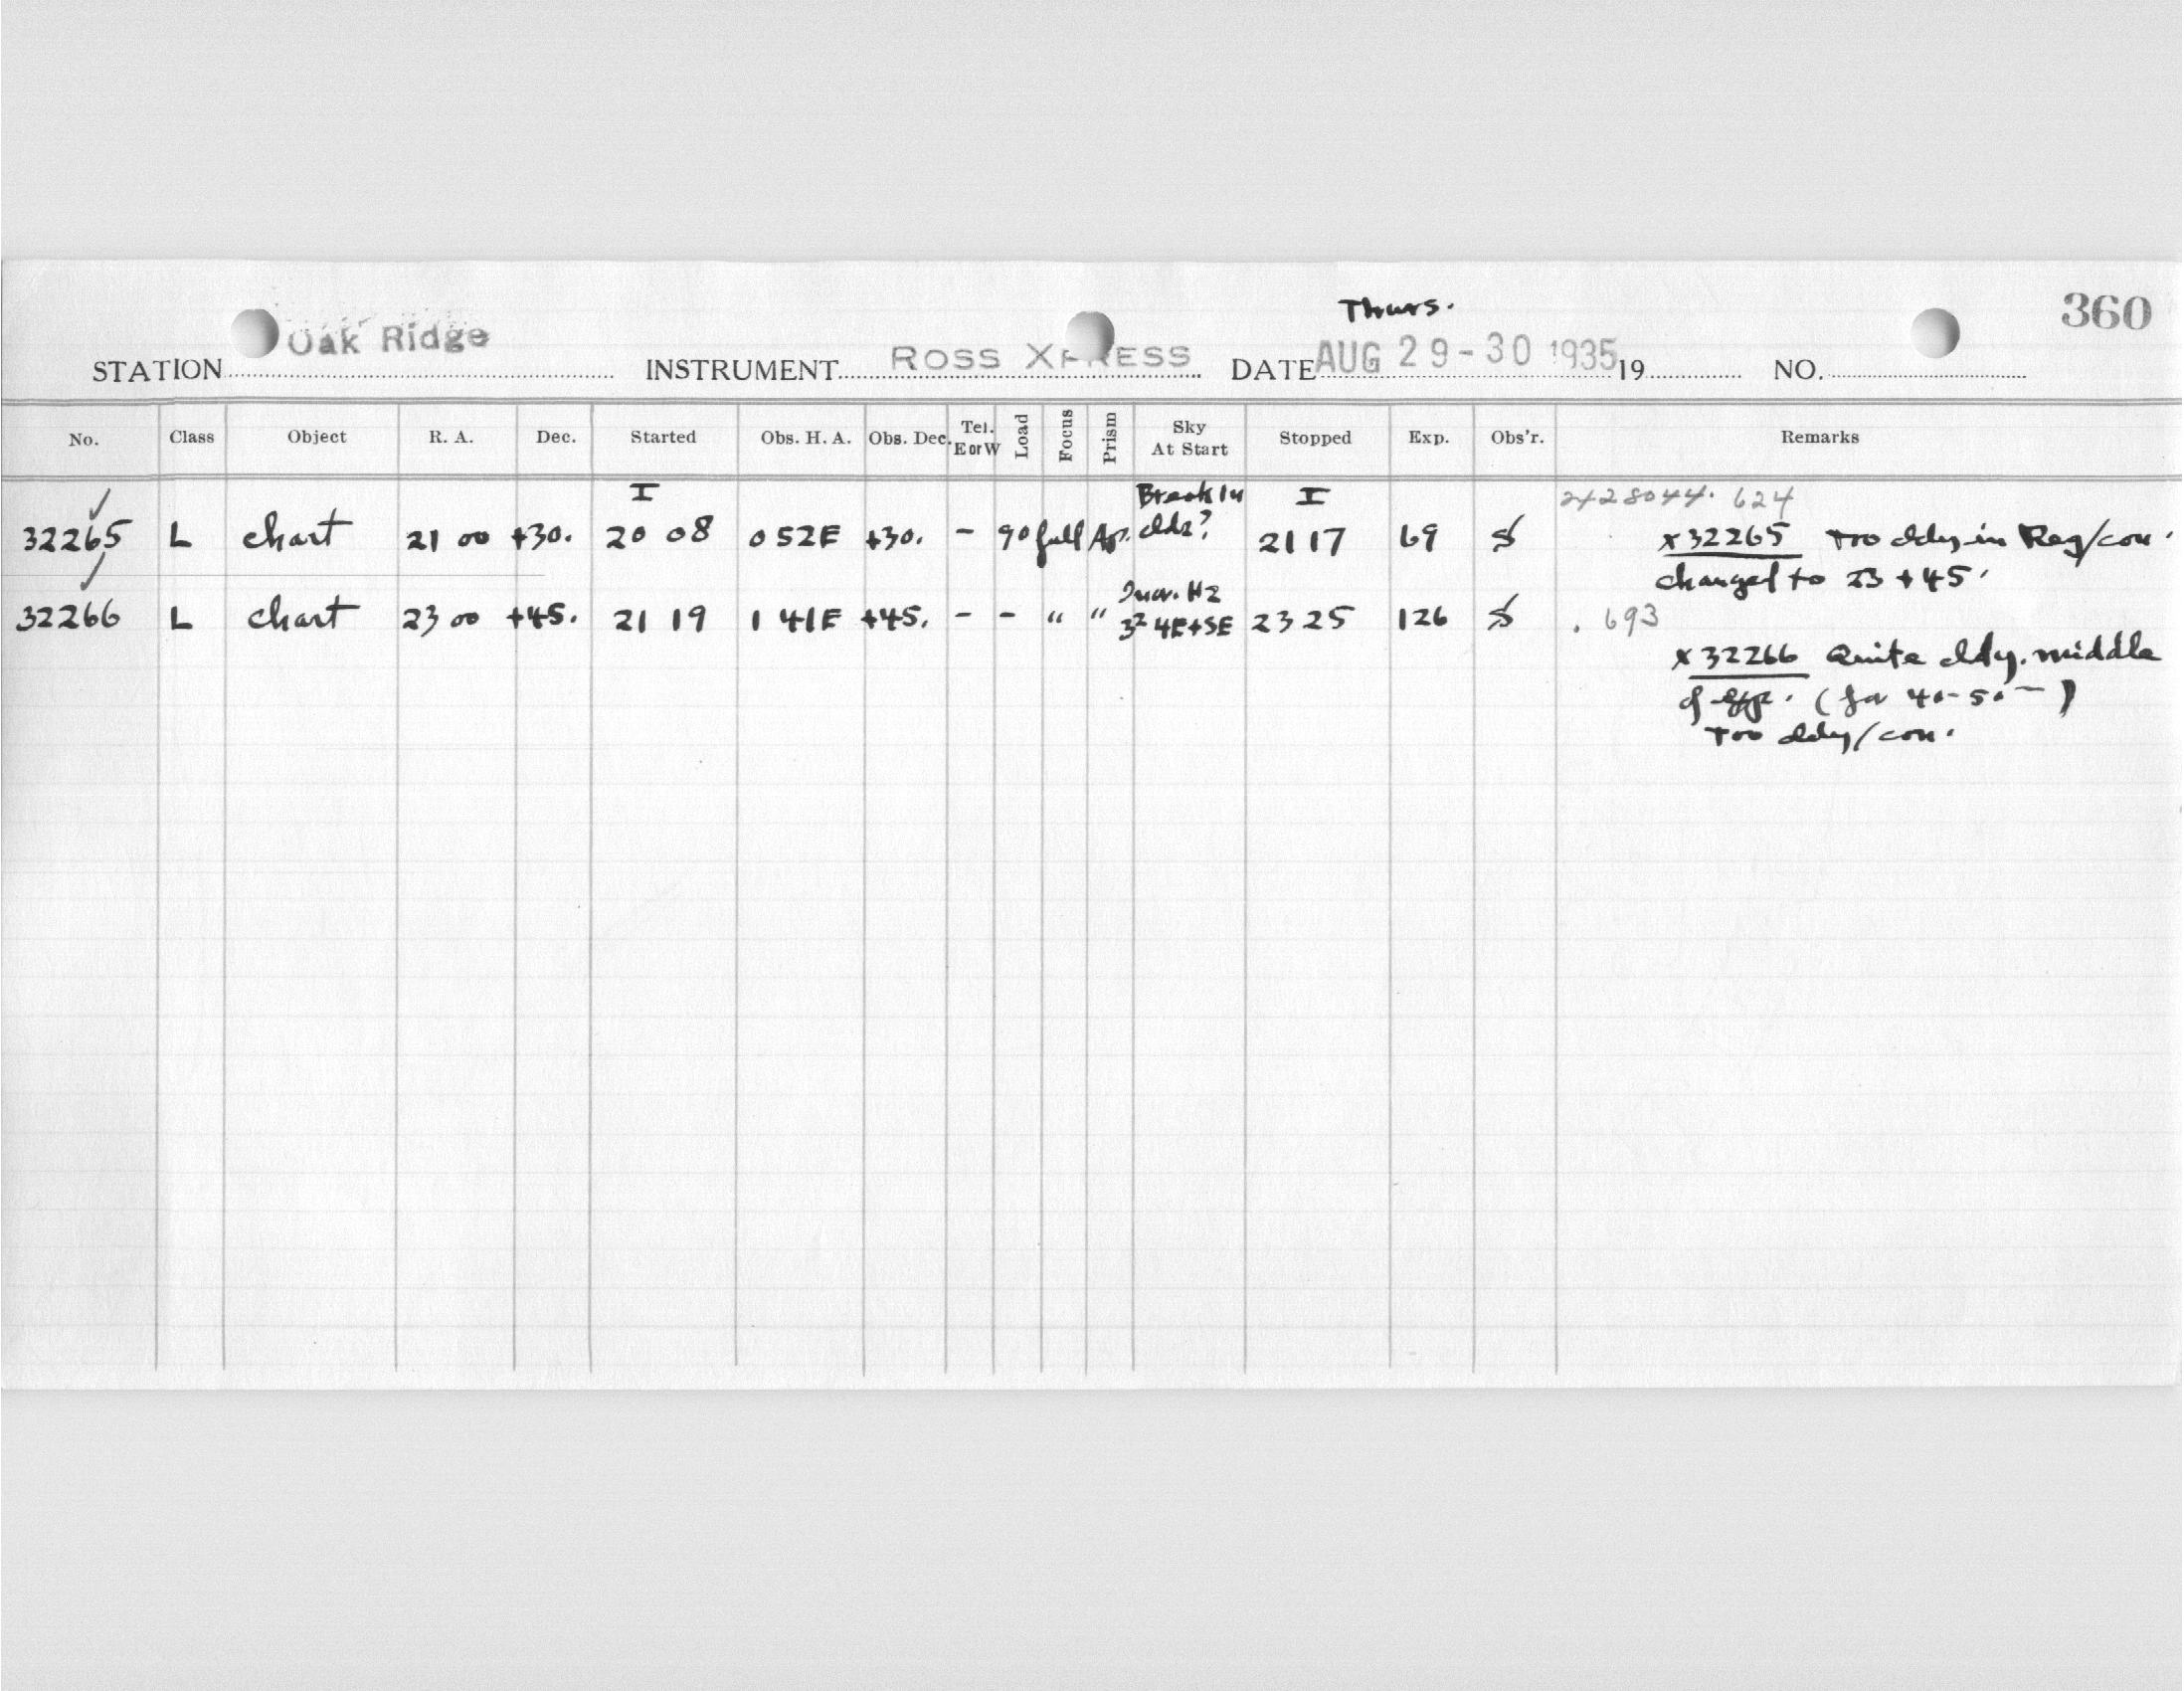 Thurs.
360
STATION Oak Ridge INSTRUMENT ROSS XPRESS DATE AUG 29-30 1935 19 NO.
No. Class Object R. A. Dec. Started Obs. H. A. Obs. Dec. Tel. E or W Load Focus Prism Sky At Start Stopped Exp. Obs'r. Remarks
I Break In I 2428044. 624
32265 L chart 21 00 +30. 20 08 0 52E +30. - 90 full Ap. clds? 21 17 69 x32265 Too cldy in Reg/con.
changed to 23 +45.
32266 L chart 23 00 +45. 21 19 1 41E +45. - - " " Hz 4E+SE 23 25 126 . 693
x32266 Quite cldy. middle
of exp. (for 40-50 m)
Too cldy/con.